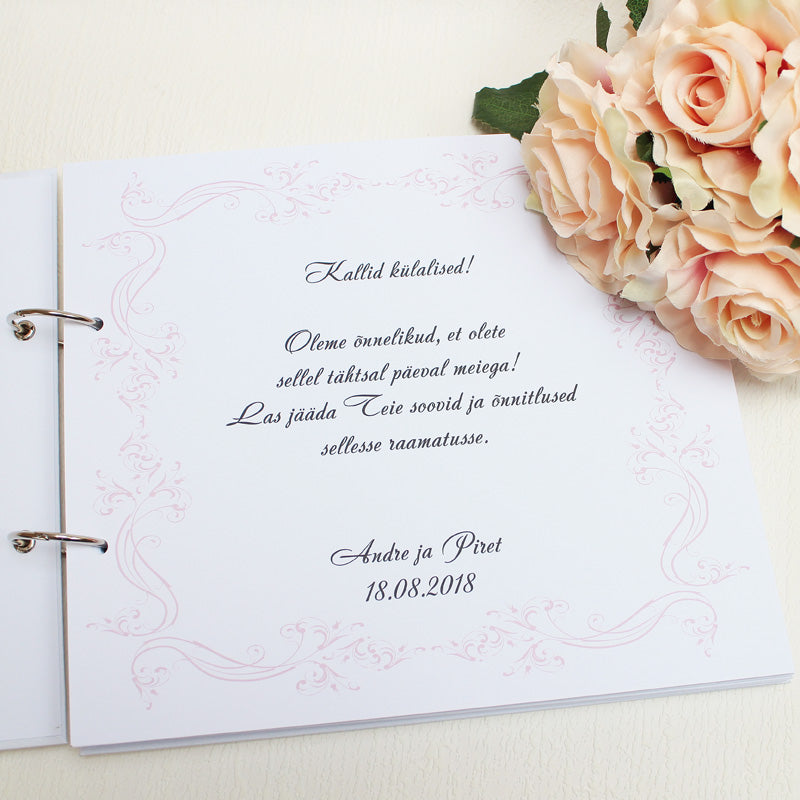 Kallid külalised!
Oleme õnnelikud, et olete
sellel tähtsal päeval meiega!
Las jääda Teie soovid ja õnnitlused
sellesse raamatusse.
Andre ja Piret
18.08.2018